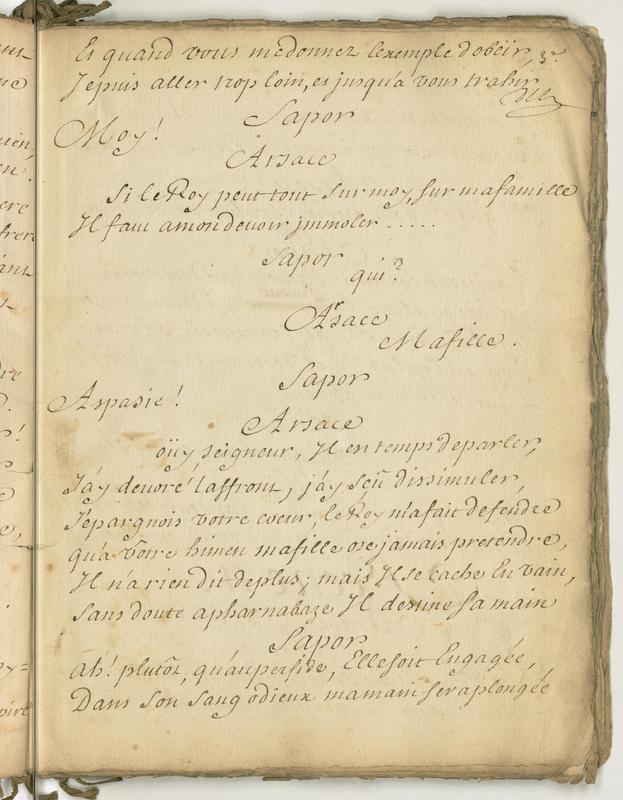 Et quand vous me donnez lexemple dobeïr, 3e.
Jepuis aller trop loin, et jusqu'a vous trahir,
Sapor
Moy!
Arsace
Si le Roy peut tout sur moy, sur mafamille
Il faut amondevoir jmmoler .....
Sapor
qui?
Arsace
Mafille.
Sapor
Aspasie!
Arsace
oüy, seigneur, Il en temps deparler,
J'ay devoré laffront, j'ay sçû dissimuler,
J'épargnois votre coeur, le Roy m'afait defendre
qu'a vôtre himen mafille ose jamais pretendre,
Il n'a rien dit deplus; mais Il se cache En vain,
Sans doute apharnabaze Il destine sa main
Sapor
Ah! plutôt, qu'auperfide, Elle soit Engagée,
Dans son sang odieux mamain seraplongée